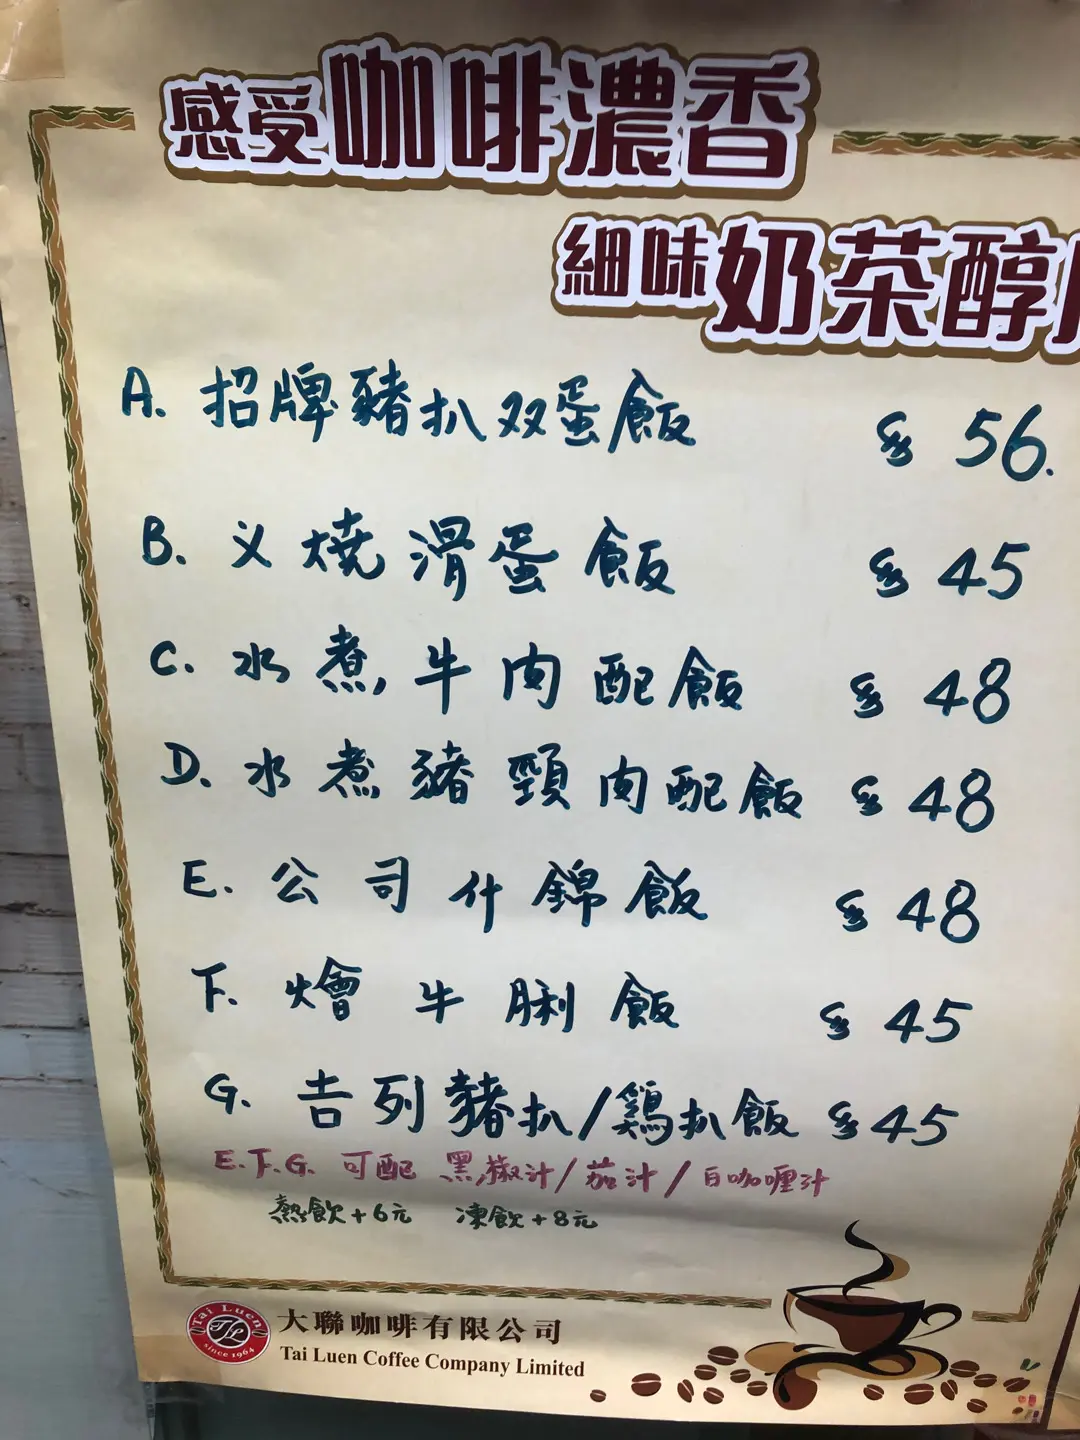 感受咖啡濃香
細味奶茶醇
A. 招牌豬扒双蛋飯 $ 56.
B. 义燒滑蛋飯 $ 45
C. 水煮牛肉配飯 $ 48
D. 水煮豬頸肉配飯 $ 48
E. 公司什錦飯 $ 48
F. 燴牛脷飯 $ 45
G. 吉列豬扒/鷄扒飯 $ 45
E.F.G. 可配 黑椒汁/茄汁/白咖喱汁
熱飲+6元 凍飲+8元
Tai Luen
TL
since 1964
大聯咖啡有限公司
Tai Luen Coffee Company Limited